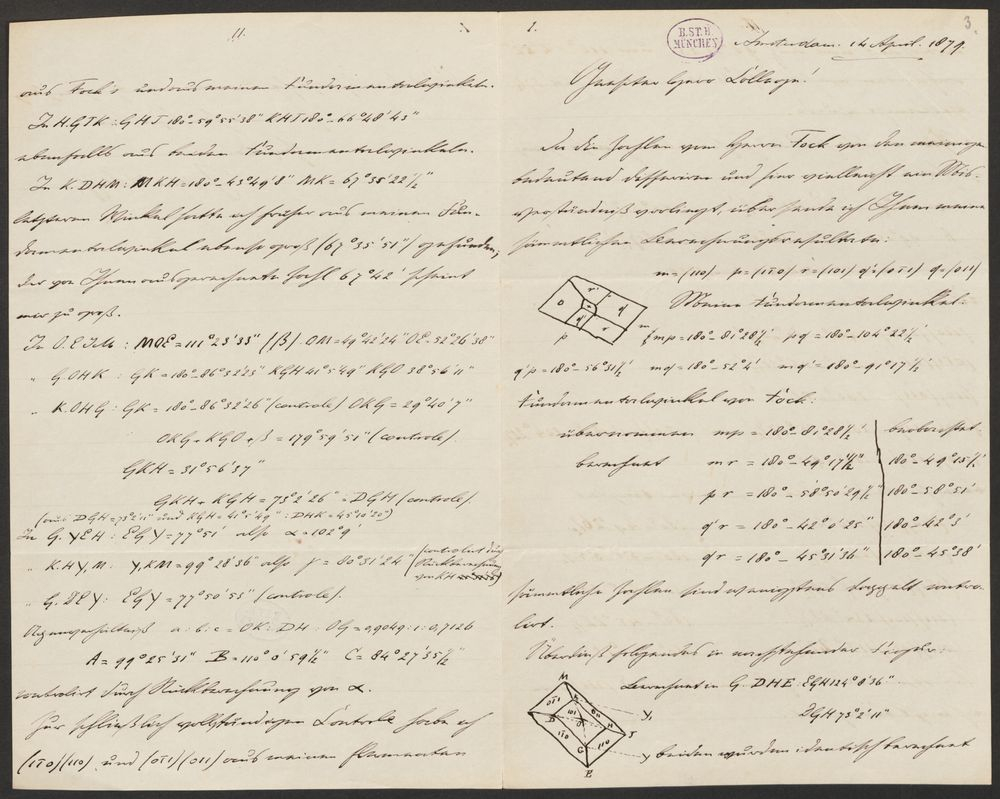 I.
3.
B.ST.B.
MÜNCHEN
Amsterdam. 14 April. 1879.
Geehrter Herr College!
Da die Zahlen von Herrn Fock von den meinigen
bedeutend differiren und hier vielleicht ein Mis-
verständniß vorliegt, übersende ich Ihnen meine
sämmtlichen Berechnungsresultate:
m=(110) p=(1̄10) r=(101) q'=(01̄1) q=(011)
Meine Fundamentalwinkel:
mp=180°-81°28½' pq=180°-104°22½'
q'p=180°-56°31½' mq=180°-52°4' mq'=180°-91°17½'
Fundamentalwinkel von Fock:
übernommen mp=180°-81°28½' beobachtet
berechnet mr=180°-49°17'½" 180°-49°15½'
pr=180°-58°50'29½" 180°-58°51'
q'r=180°-42°0'25" 180°-42°3'
qr=180°-45°31'36" 180°-45°38'
sämmtliche Zahlen sind wenigstens doppelt contro-
lirt.
Überdieß folgendes in nachstehender Figur:
Berechnet in G. DHE. EGH 124°8'36"
DGH 73°2'11"
beiden wurden identisch berechnet
II.
aus Fock's und aus meinen Fundamentalwinkeln.
In H.GJK: GHJ 180°-59°55'38" KHJ 180°-66°48'43"
ebenfalls aus beiden Fundamentalwinkeln.
In K.DHM: MKH=180°-43°49'8" MK=67°35'22½"
letzteren Winkel hatte ich früher aus meinen Fun-
damentalwinkel ebenso groß (67°35'51") gefunden,
die von Ihnen ausgerechnete Zahl 67°42' scheint
mir zu groß.
In O.EJM: MOE=111°23'33" (β) OM=49°42'24" OE=52°26'38"
" G.OHK: GK=180°-86°32'25" KGH 41°5'49" KGO 38°56'11"
" K.OHG: GK=180°-86°32'26" (controle) OKG=29°40'7"
OKG+KGO+β=179°59'51" (controle).
GKH=31°56'37"
GKH+KGH=73°2'26"=DGH (controle).
(aus DGH=73°2'11" und KGH=41°5'49": DHK=45°10'20")
In G.YEH: EGY=77°51' also α=102°9'
" K.HY,M: Y,KM=99°28'36" also γ=80°31'24" (controlirt durch
Rückberechnung
von KH
" G.DEY: EGY=77°50'55" (controle).
Axenverhältniß a:b:c=OK:DH:OG=0,9049:1:0,7126
A=99°25'31" B=110°0'59½" C=84°27'35½"
controlirt durch Rückberechnung von α.
Zur schließlich vollständigen Controle habe ich
(1̄10)(110) und (01̄1)(011) aus meinen Elementen